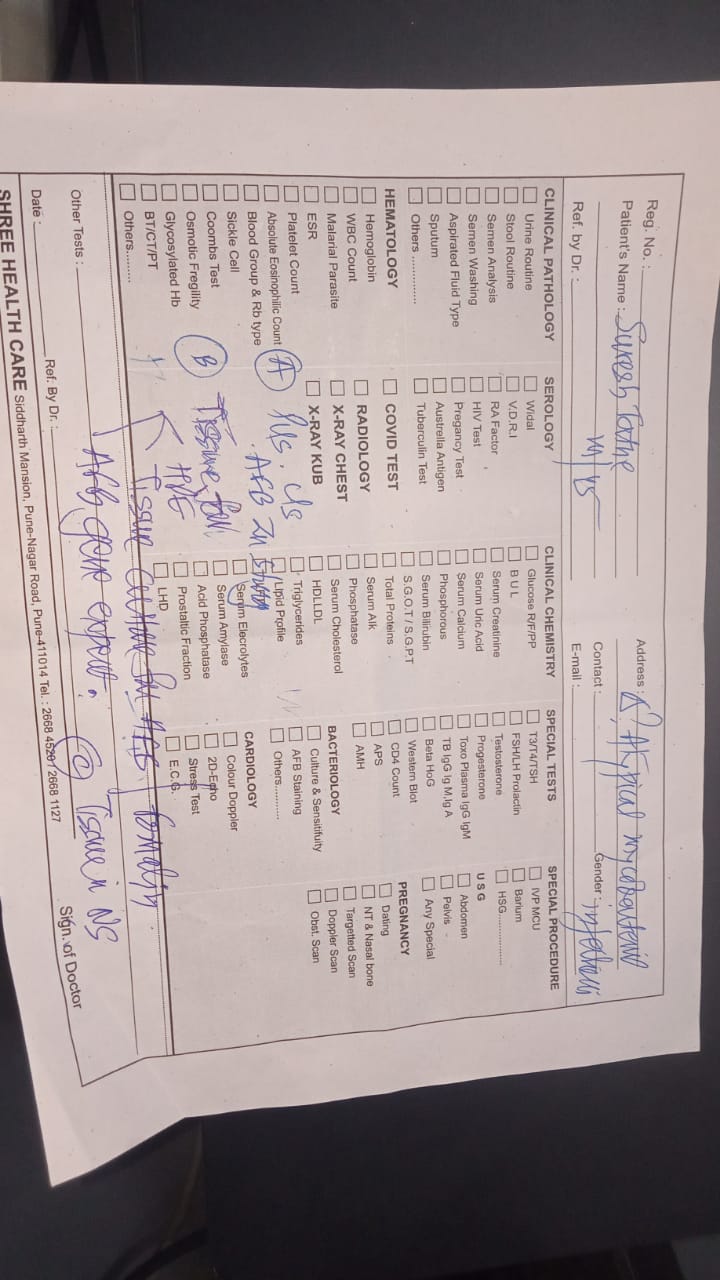 Reg. No. :
Patient's Name : Suresh
M/45
Ref. by Dr. :
Address : ? Atypical mycobacterial
infection
Contact :
Gender :
E-mail :
CLINICAL PATHOLOGY
Urine Routine
Stool Routine
Semen Analysis
Semen Washing
Aspirated Fluid Type
Sputum
Others ..............
HEMATOLOGY
Hemoglobin
WBC Count
Malarial Parasite
ESR
Platelet Count
Absolute Eosinophilic Count
Blood Group & Rb type
Sickle Cell
Coombs Test
Osmotic Fregility
Glycosylated Hb
BT/CT/PT
Others.........
SEROLOGY
Widal
V.D.R.I
RA Factor
HIV Test
Pregancy Test
Austrella Antigen
Tuberculin Test
COVID TEST
RADIOLOGY
X-RAY CHEST
X-RAY KUB
CLINICAL CHEMISTRY
Glucose R/F/PP
B U L
Serum Creatinine
Serum Uric Acid
Serum Calcium
Phosphorous
Serum Bilirubin
S.G.O.T / S.G.P.T
Total Proteins
Serum Alk
Phosphatase
Serum Cholesterol
HDLLDL
Triglycerides
Lipid Profile
Serum Elecrolytes
Serum Amylase
Acid Phosphatase
Prostaltic Fraction
LHD
SPECIAL TESTS
T3/T4/TSH
FSH/LH Prolactin
Testosterone
Progesterone
Toxo Plasma IgG IgM
TB IgG Ig M,Ig A
Beta HoG
Western Blot
CD4 Count
APS
AMH
BACTERIOLOGY
Culture & Sensitifuity
AFB Staining
Others...........
CARDIOLOGY
Colour Doppler
2D-Echo
Stress Test
E.C.G.
SPECIAL PROCEDURE
IVP MCU
Barium
HSG..................
U S G
Abdomen
Pelvis
Any Special
PREGNANCY
Dating
NT & Nasal bone
Targetted Scan
Doppler Scan
Obst. Scan
A Pus. c/s
AFB ZN
B Tissue for
HPE
Tissue culture for AFB formalin
Other Tests :
AFB gene expert.
C Tissue in NS
Date :
Ref. By Dr. :
Sign. of Doctor
SHREE HEALTH CARE Siddharth Mansion, Pune-Nagar Road, Pune-411014 Tel. : 2668 4529 / 2668 1127